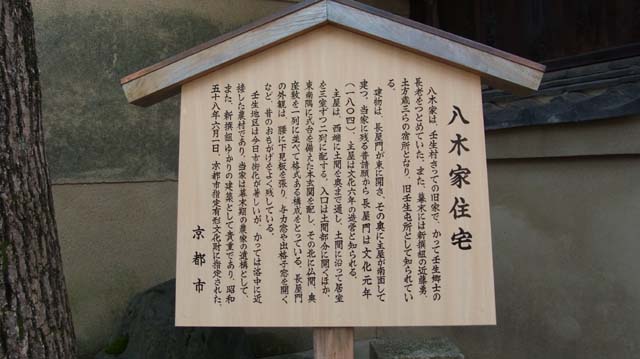 八木家住宅
八木家は、壬生村きっての旧家で、かつて壬生郷士の
長老をつとめていた。また、幕末には新撰組の近藤勇、
土方歳三らの宿所となり、旧壬生屯所として知られてい
る。
建物は、長屋門が東に開き、その奥に主屋が南面して
建つ。当家に残る普請願から長屋門は文化元年
(一八〇四)、主屋は文化六年の造営と知られる。
主屋は、西端に土間を奥まで通し、土間に沿って居室
を三室ずつ二列に配する。入口は土間部分に開くほか、
東南隅に式台を備えた本玄関を配し、その北に仏間、奥
座敷を一列に並べて格式ある構成をとっている。長屋門
の外観は、腰に下見板を張り、与力窓や出格子窓を開く
など、昔のおもかげをよく残している。
壬生地区は今日市街化が著しいが、かつては洛中に近
接した農村であり、当家は幕末期の農家の遺構として、
また、新撰組ゆかりの建築として貴重であり、昭和
五十八年六月一日、京都市指定有形文化財に指定された。
京都市